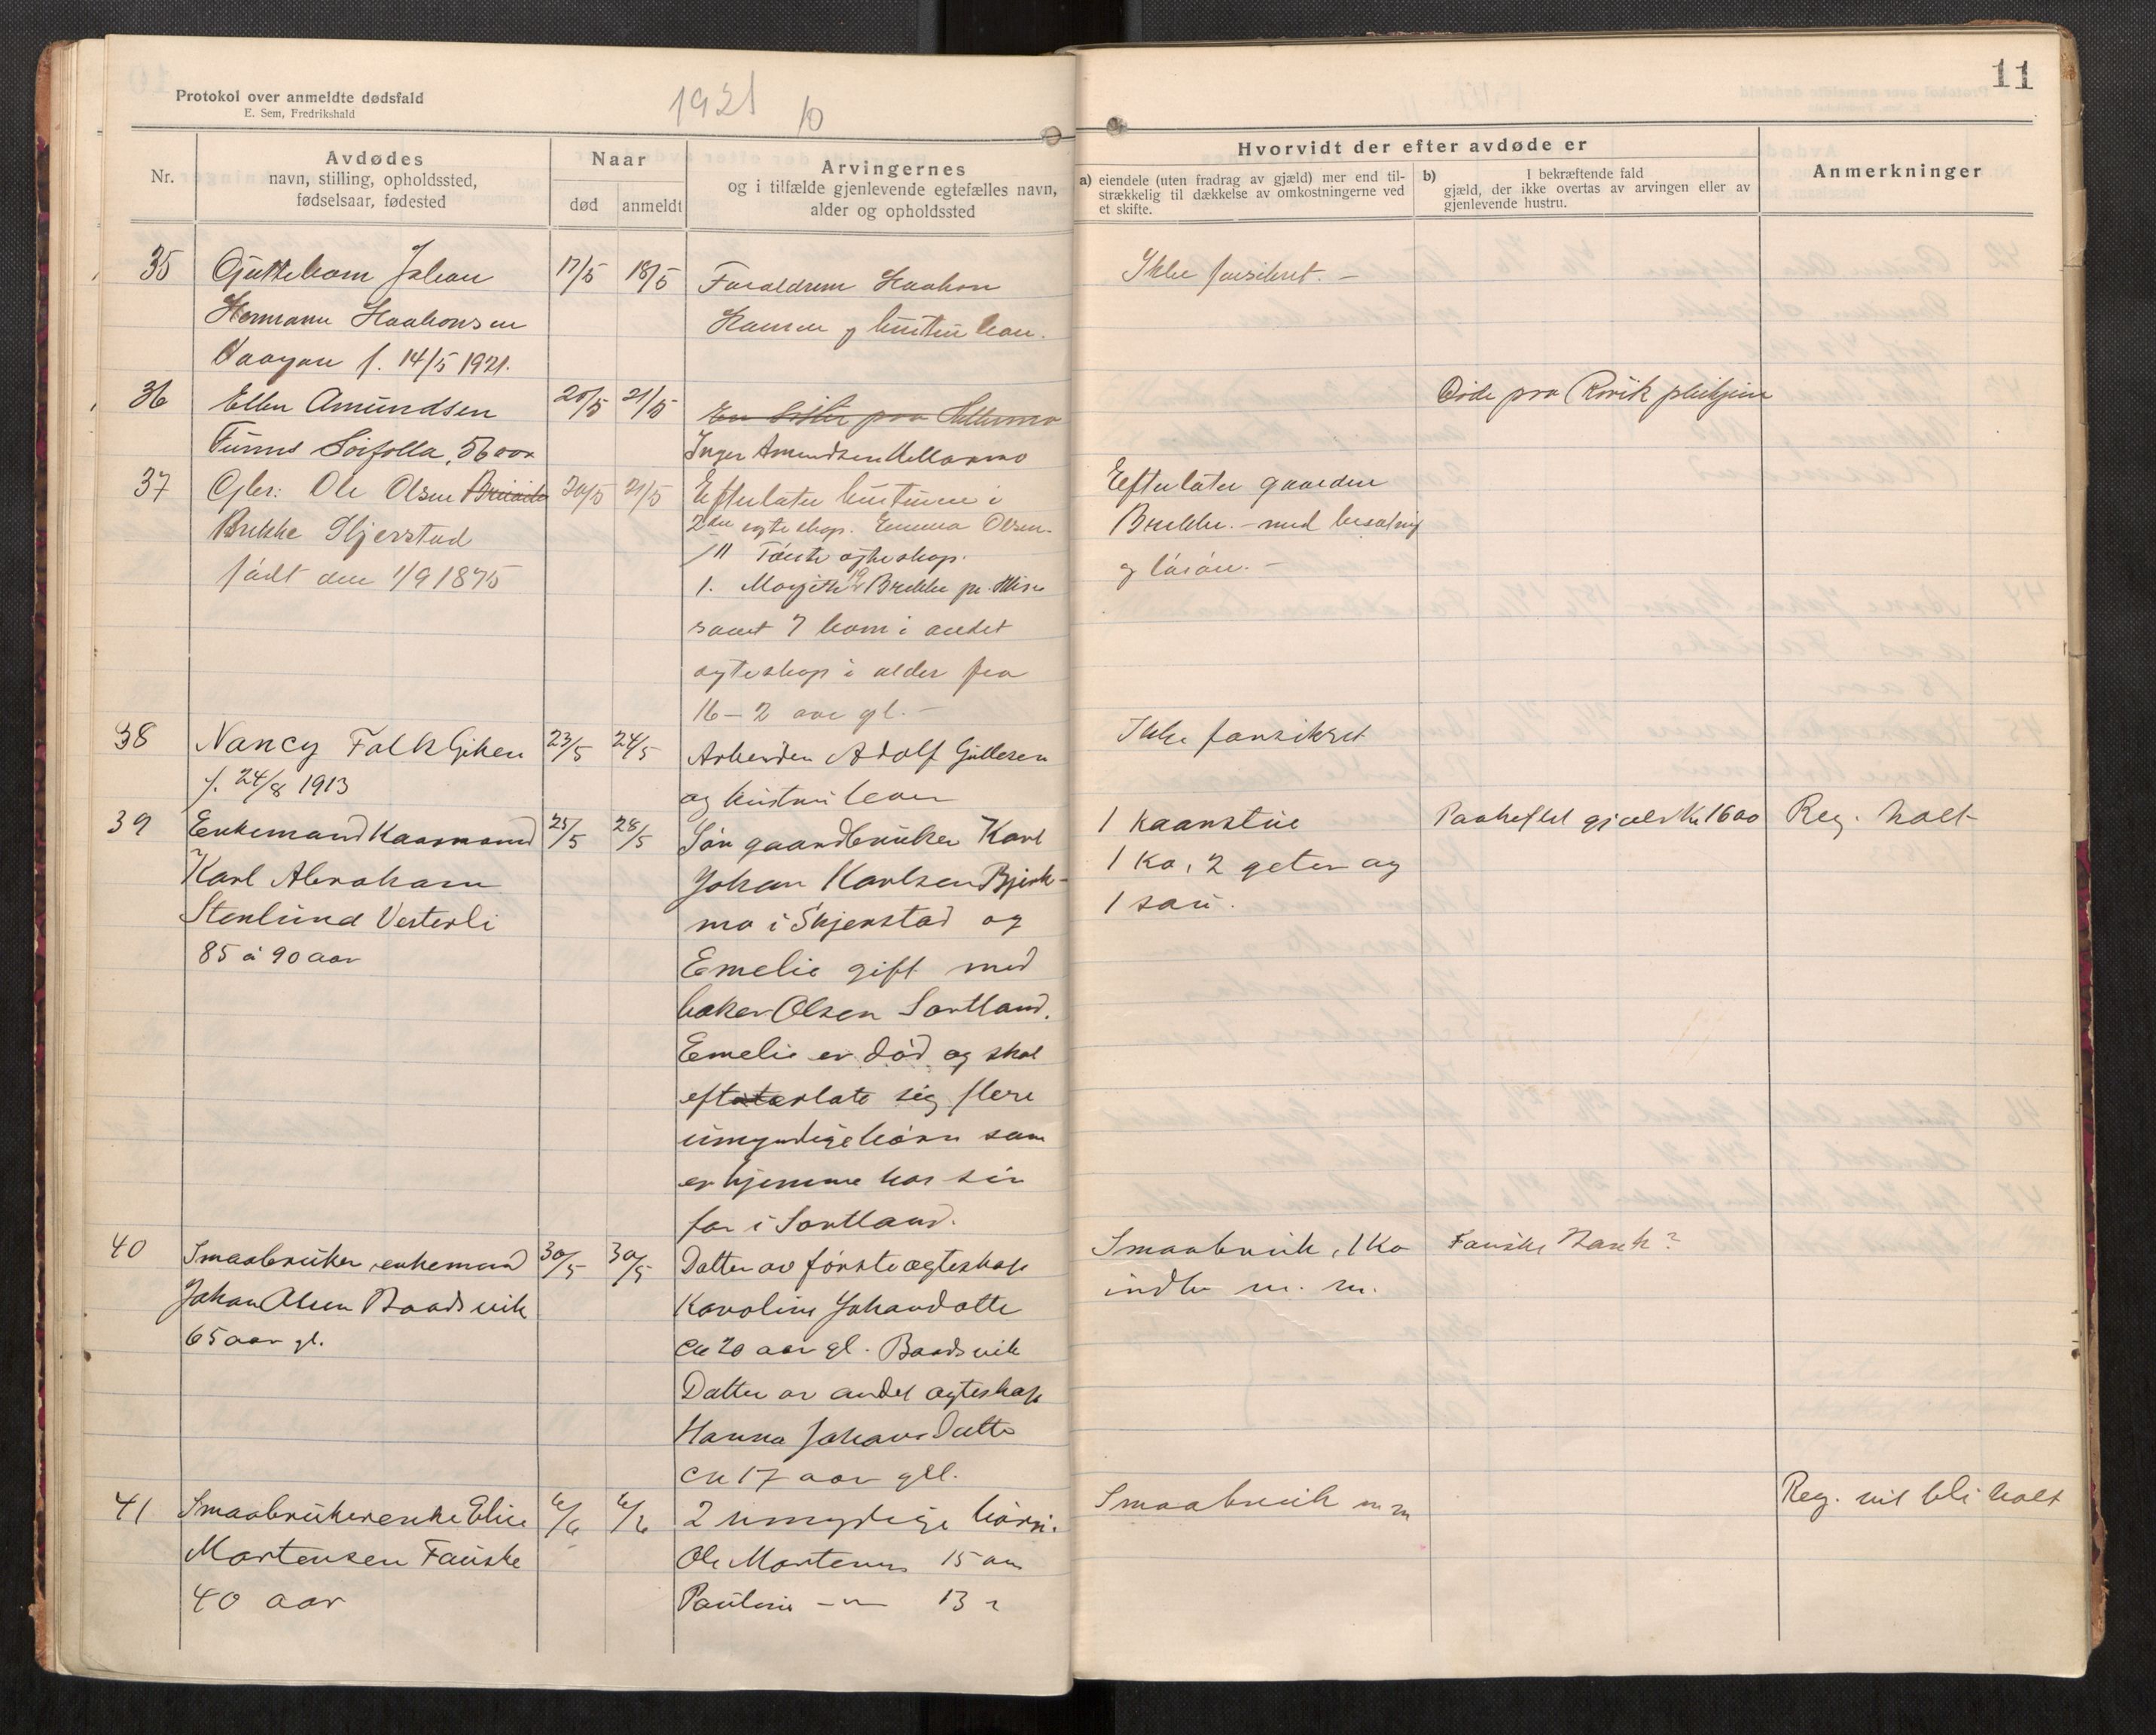 Protokol over anmeldte dødsfald
E. Sem, Fredrikshald
1921
10
11
Nr.
Avdødes
navn, stilling, opholdssted,
fødselsaar, fødested
Naar
død
anmeldt
Arvingernes
og i tilfælde gjenlevende egtefælles navn,
alder og opholdssted
Hvorvidt der efter avdøde er
a) eiendele (uten fradrag av gjæld) mer end til-
strækkelig til dækkelse av omkostningerne ved
et skifte.
b) I bekræftende fald
gjæld, der ikke overtas av arvingen eller av
gjenlevende hustru.
Anmerkninger
35
Guttebarn Johan
Hermann Haakonsen
f. 14/5 1921.
17/5
18/5
Forældrene Haakon
Hansen og hustru
Ikke forsikret. –
36
Ellen Amundsen
Sørfolla, 56 aar
20/5
21/5
En søster paa
Inger Amundsen
Døde paa Røvik pleiehjem
37
Gbr: Ole Olsen
Brekke Skjerstad
født den 1/9 1875
20/5
21/5
Efterlater hustruen i
2den egteskap. Emma Olsen.
Første egteskap.
1. Margithe 19 Brekke
samt 7 barn i andet
egteskap i alder fra
16 – 2 aar gl. –
Efterlater gaarden
Brekke. – med besætning
og løsøre. –
38
Nancy Falk
f. 24/8 1913
23/5
24/5
Arbeider Adolf
og hustru
Ikke forsikret
39
Enkemand Kaarmand
Karl Abraham
Stenlund Vesterli
85 á 90 aar
25/5
28/5
Søn gaardbruker Karl
Johan Karlsen Bjerk-
mo i Skjerstad og
Emelie gift med
baker Olsen Sortland.
Emelie er død og skal
efterlate sig flere
umyndige børn som
er hjemme hos sin
far i Sortland.
1 kaarstue
1 ko, 2 geter og
1 sau.
Paaheftet gjæld kr 1600
Reg. holt
40
Smaabruker enkemand
Johan Olsen Baadsvik
65 aar gl.
30/5
30/5
Datter av første egteskap
Karoline Johansdatter
ca 20 aar gl. Baadsvik
Datter av andet egteskap
Hanna Johansdatter
ca 17 aar gl.
Smaabruk, 1 ko
indbo m. m.
Fauske Bank?
41
Smaabrukerenke Elise
Mortensen Fauske
40 aar
6/6
6/6
2 umyndige børn.
Ole Mortensen 15 aar
Pauline –"– 13 "
Smaabruk m m
Reg. vil bli holt